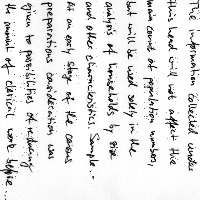 The information collected under
this head will not affect the
main count of population numbers,
but will be used solely in the
analysis of households by size
and other characteristics. Sample..
At an early stage of the census
preparations consideration was
given to possibilities of reducing
the amount of clerical work before...